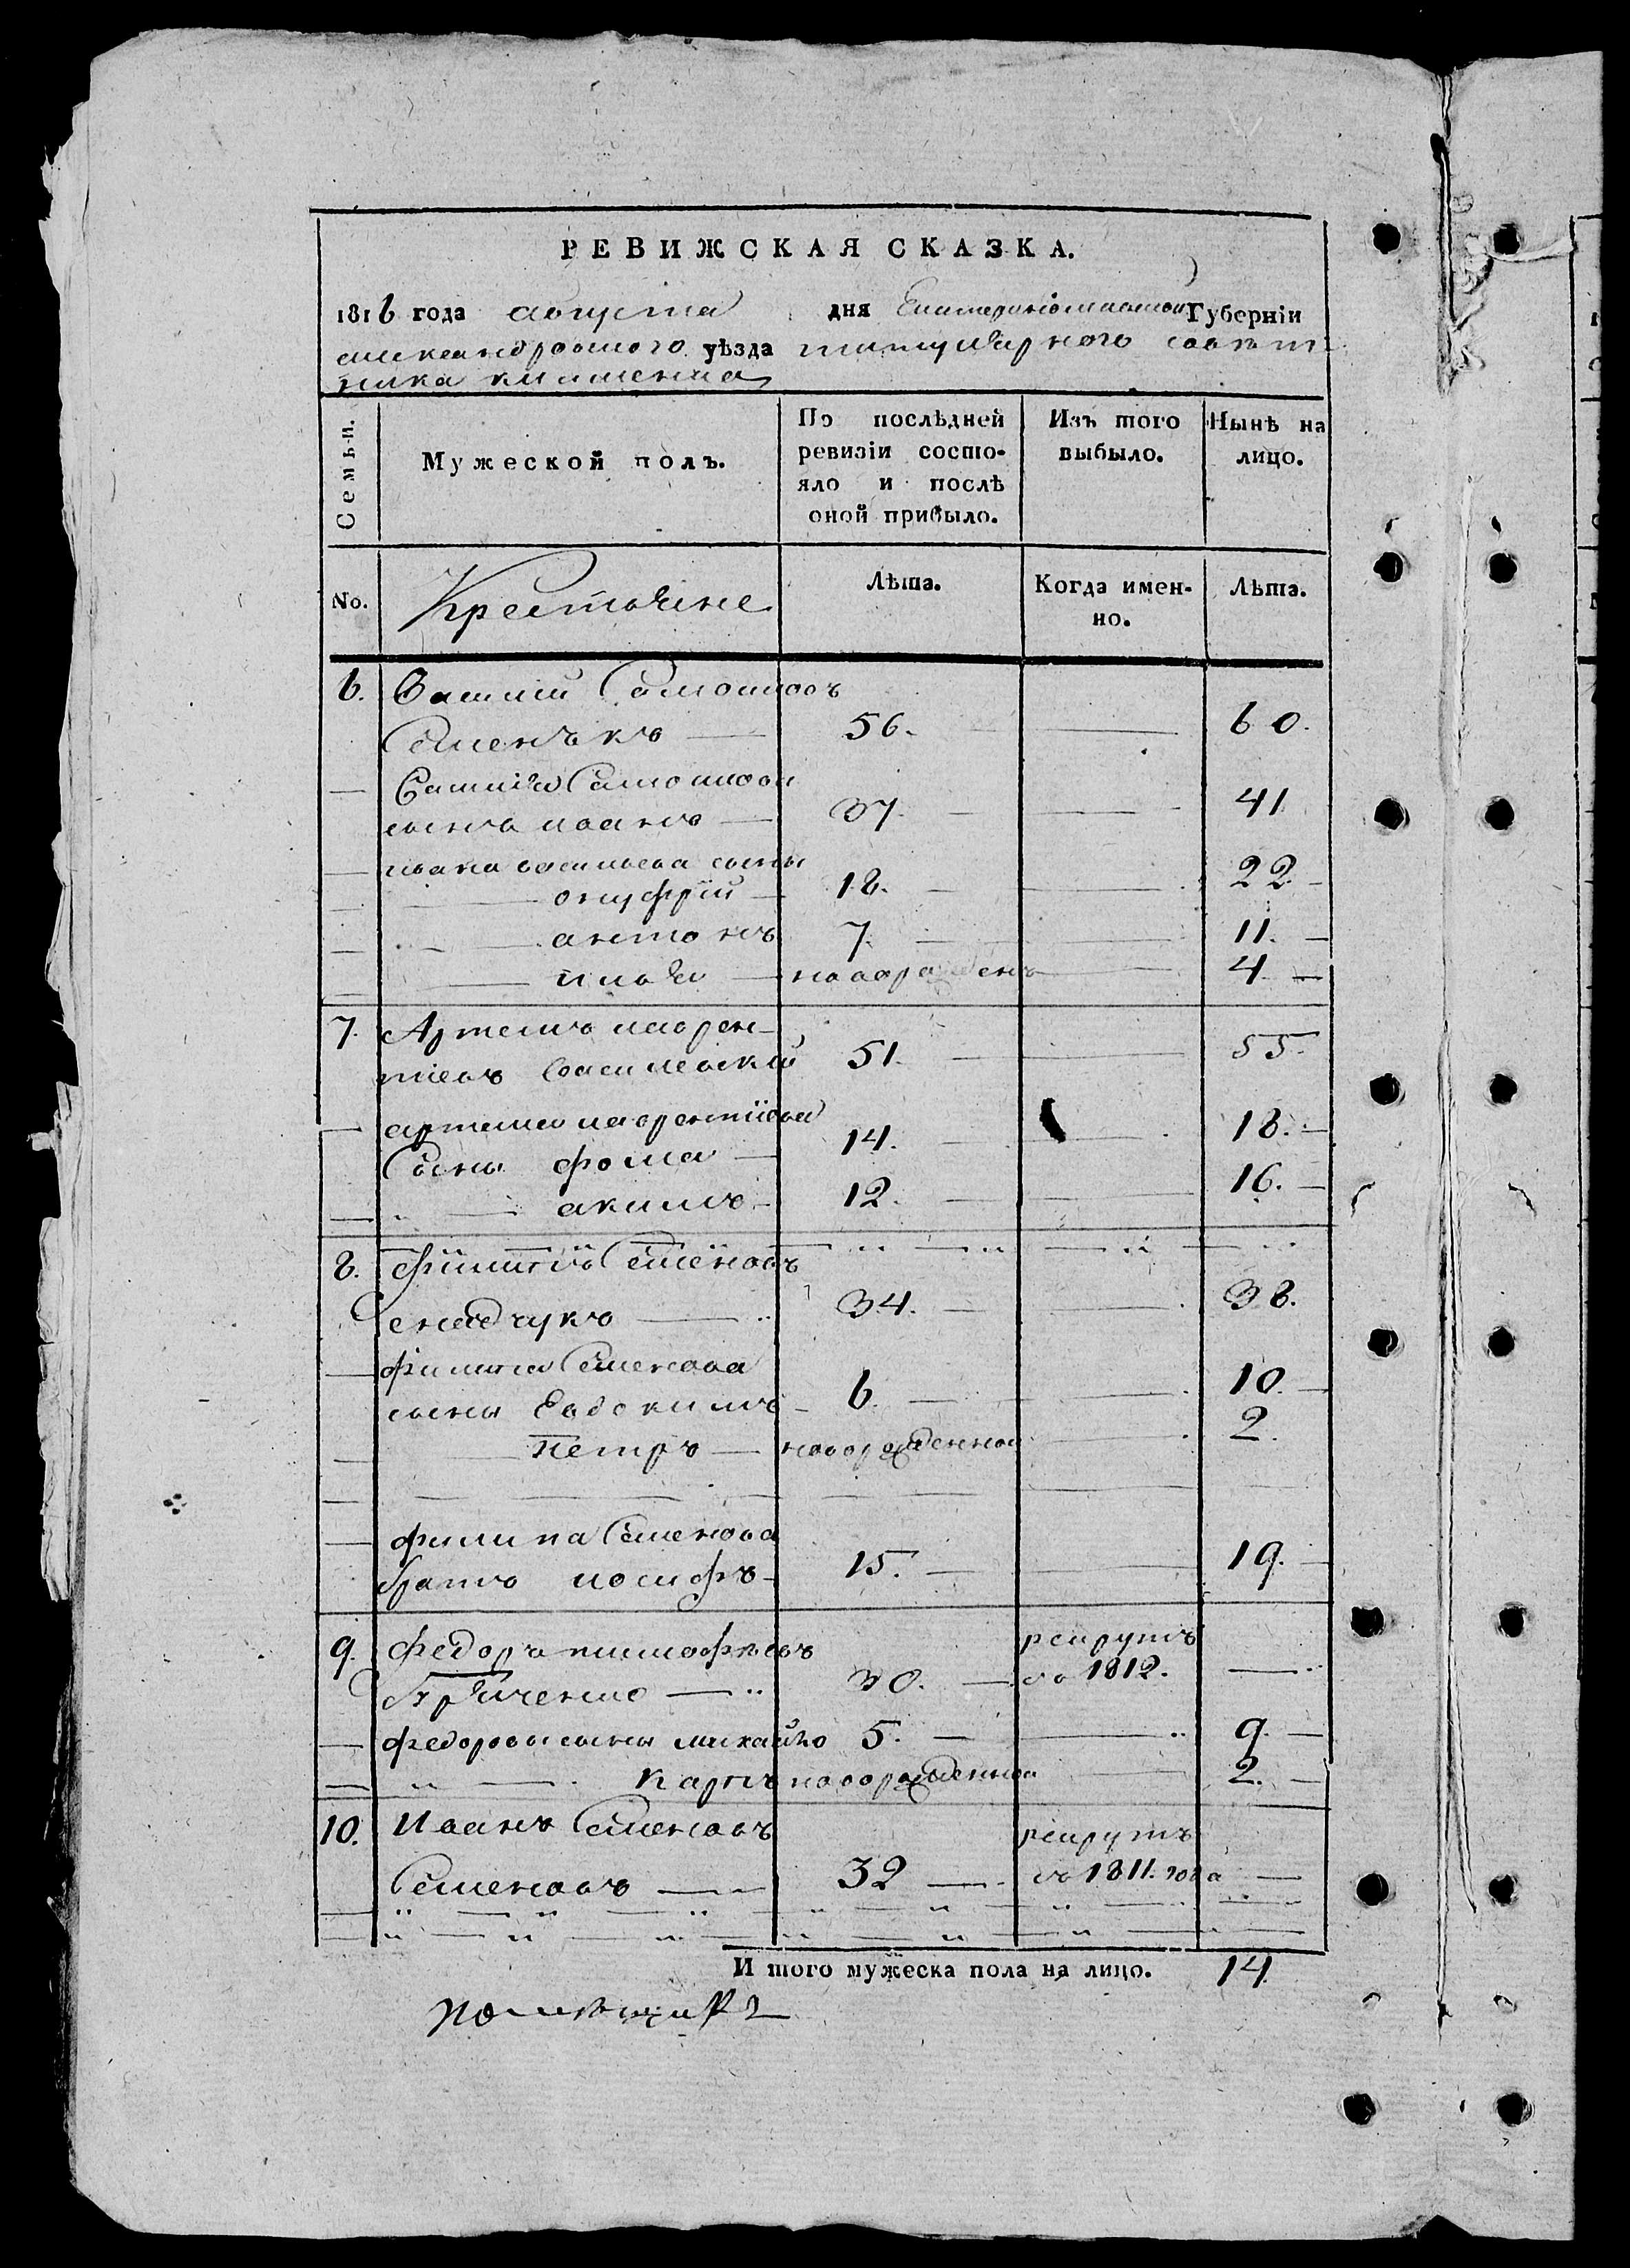 РЕВИЖСКАЯ СКАЗКА.
1816 года августа дня Екатеринославской Губерніи
александровского уѣзда титулярного совѣт
ника
Семьи.
Мужеской полъ.
По послѣдней
ревизіи состо-
яло и послѣ
оной прибыло.
Изъ того
выбыло.
Ныне на
лицо.
No.
Крестьяне
Лѣта.
Когда имен-
но.
Лѣта.
6. Василій Самойловъ
56. 60.
Василія Самойлова
сынъ иванъ 37. 41
ивана васильева сыны
онуфрій 18. 22
антонъ 7. 11.
илья новорожденъ 4
7. Артемъ лаврен-
тіевъ Василевскій 51. 55.
артема лаврентіева
Сыны фома 14. 18.
акимъ 12. 16.
8. филиппъ Семеновъ
34. 38.
филипа Семенова
сыны Евдокимъ 6. 10.
петръ новорожденной 2.
филипа Семенова
братъ иосифъ 15. 19.
9. Федоръ тимофѣевъ рекрутъ
30. въ 1812.
федоровы сыны михайло 5. 9.
карпъ новорожденной 2.
10. Иванъ Семеновъ рекрутъ
Семеновъ 32 въ 1811. года
И того мужеска пола на лицо. 14
помѣщикъ